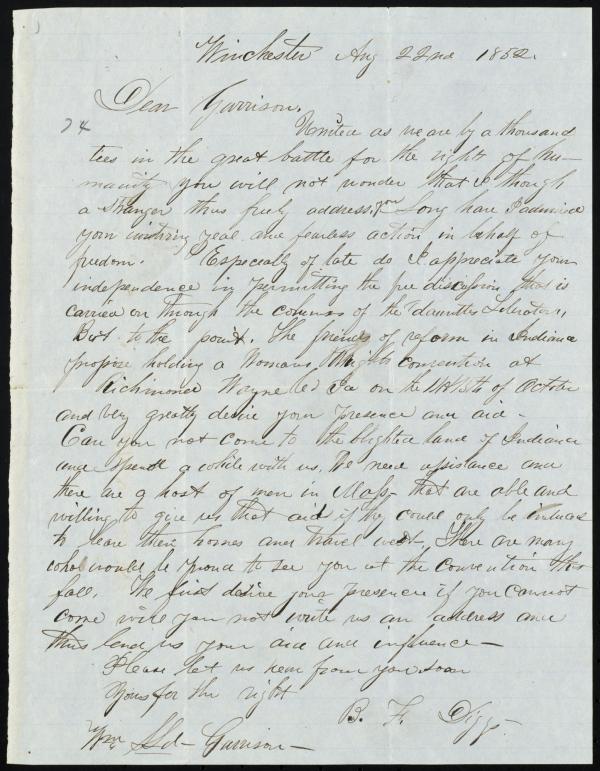 Winchester Aug 22nd 1852.
Dear Garrison,
74
United as we are by a thousand
ties in the great battle for the rights of hu-
manity you will not wonder that I though
a stranger thus freely address you Long have I admired
your untiring zeal and fearless action in behalf of
freedom. Especially of late do I appreciate your
independence in permitting the free discussion that is
carried on through the columns of the dauntless Liberator,
But to the point. The friends of reform in Indiana
propose holding a Womans Rights convention at
Richmond Wayne Co Ia on the 14 & 15th of October
and very greatly desire your presence and aid -
Can you not come to the blighted land of Indiana
and spend a while with us. We need assistance and
there are a host of men in Mass- that are able and
willing to give us that aid if they could only be induced
to leave their homes and travel west. There are many
who would be proud to see you at the convention this
fall. We first desire your presence if you cannot
come will you not write us an address and
thus lend us your aid and influence -
Please let us hear from you soon
Yours for the right
B. F. Diggs -
Wm Lld - Garrison -